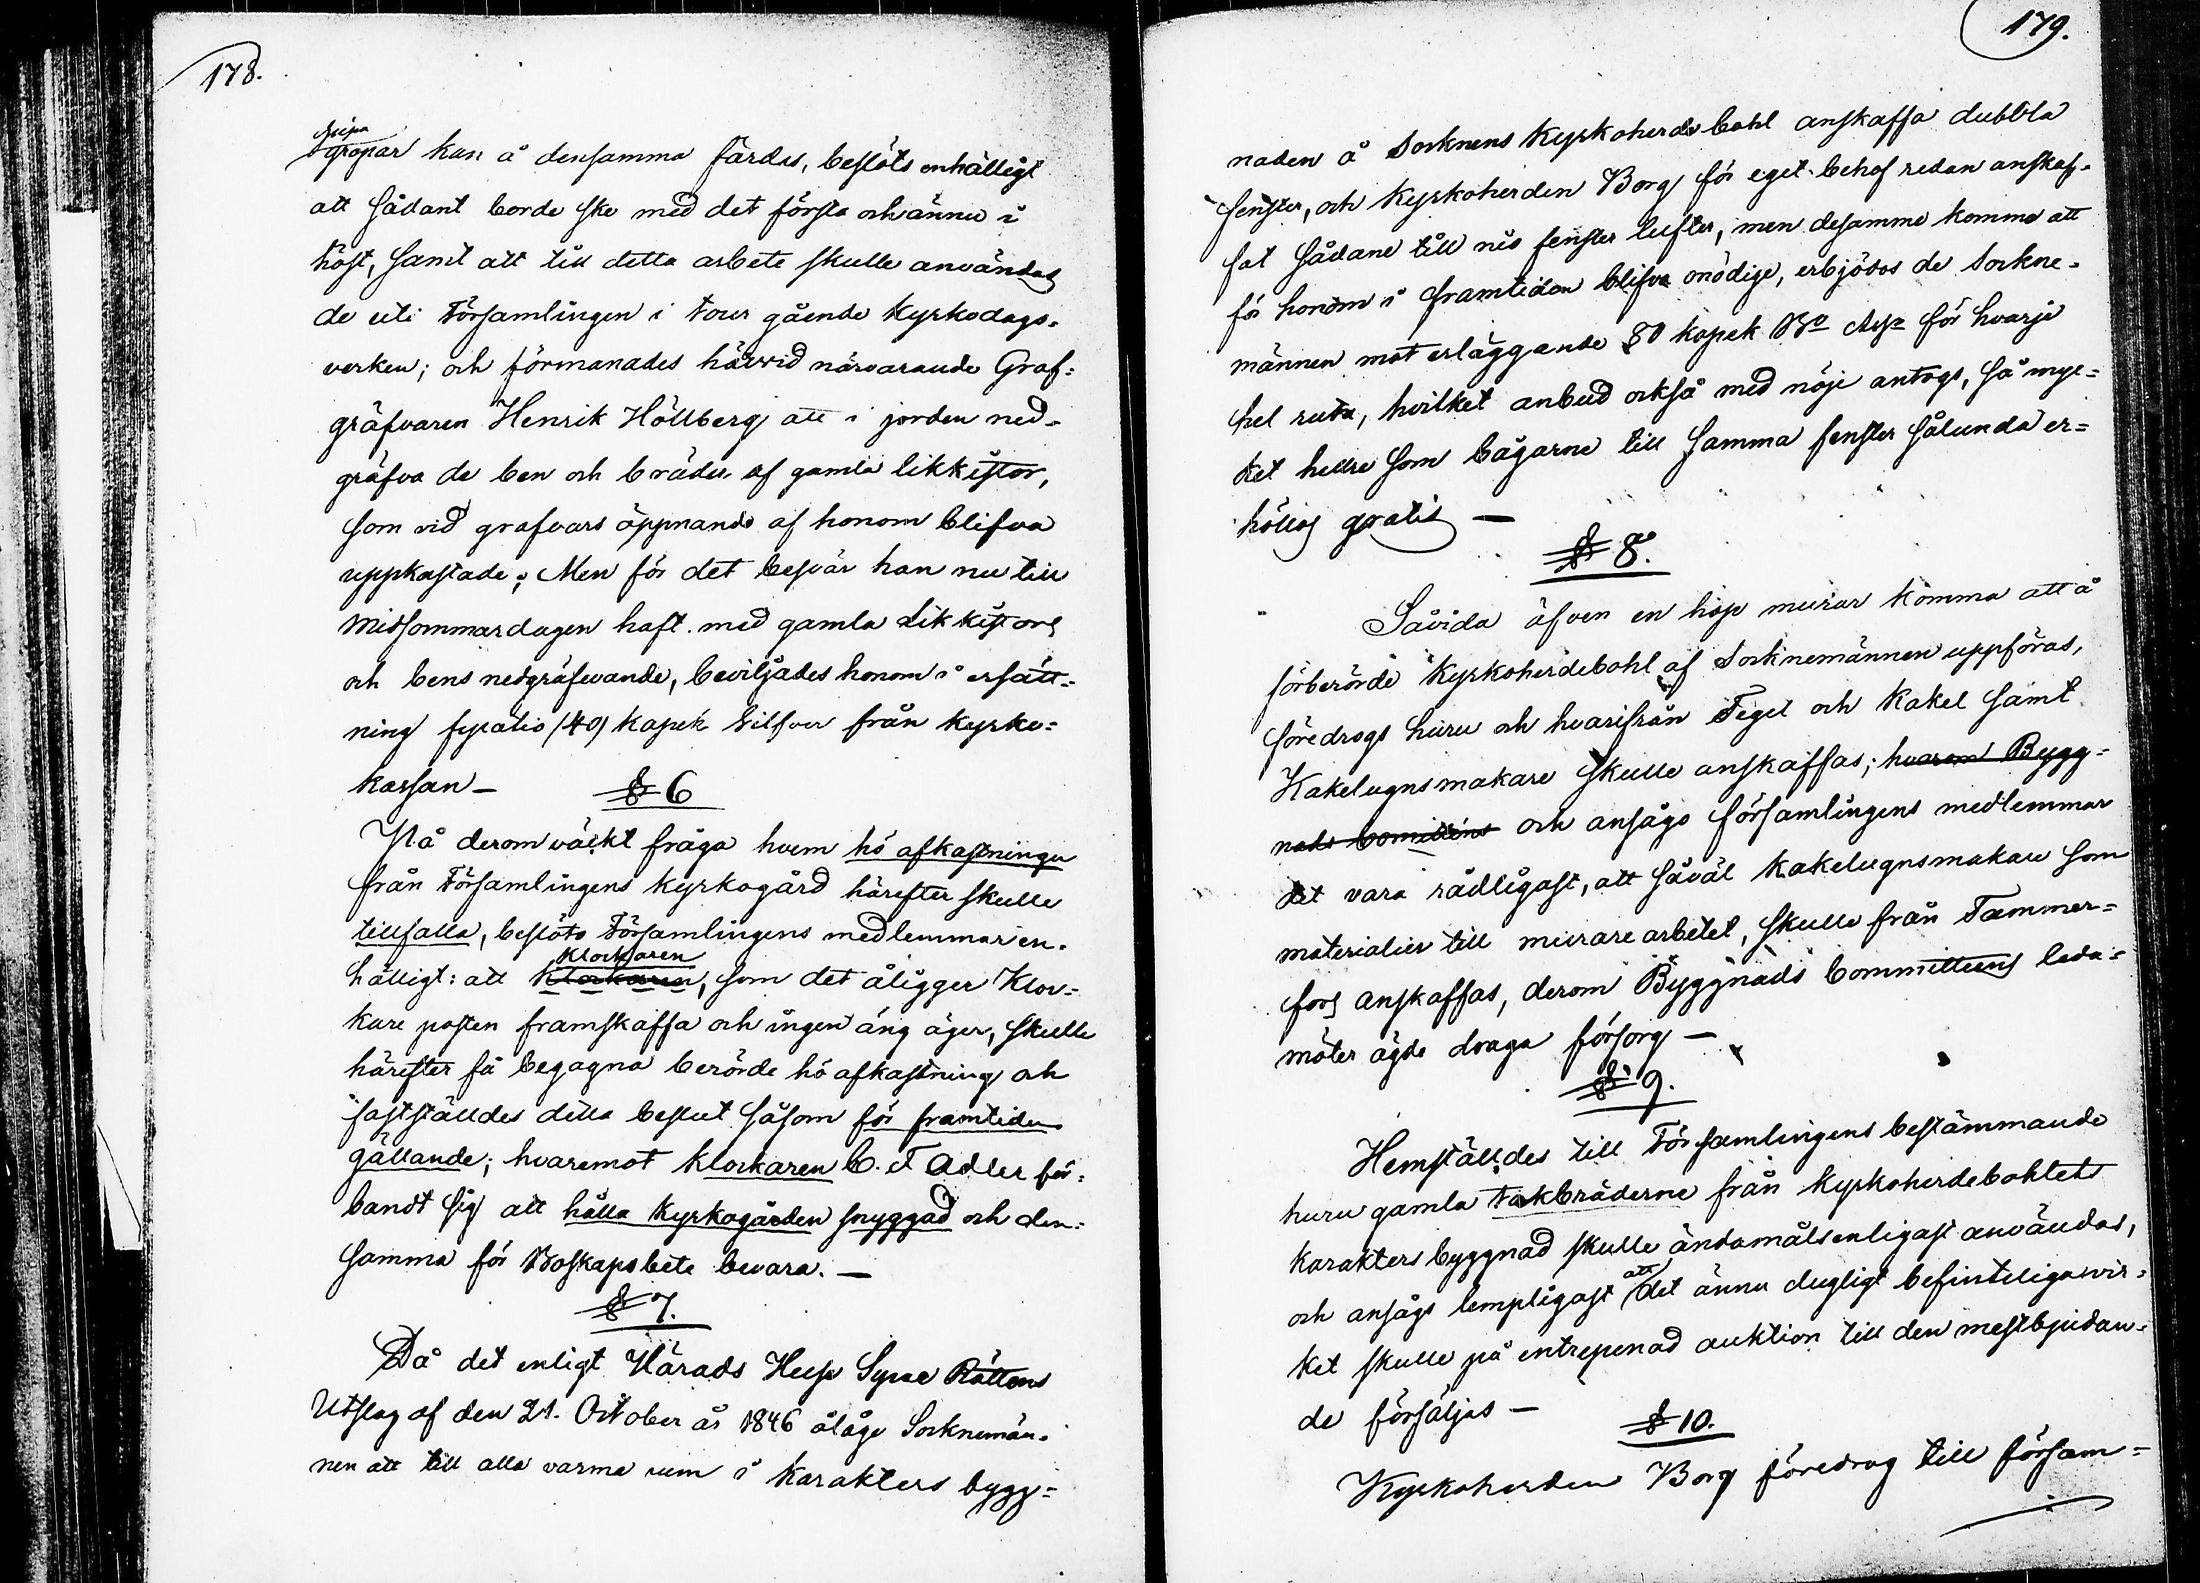 178.
djupa
gropar kan å densamma färdas, beslöts enhälligt
att sådant borde ske med det första och ännu i
höst, samt att till detta arbete skulle användas
de uti Församlingen i tour gående Kyrkodags-
verken; och förmanades härvid närvarande Graf-
gräfvaren Henrik Höllberg att i jorden ned-
gräfva de ben och bräder af gamla likkistor,
som vid grafvars öppnande af honom blifva
uppkastade; Men för det besvär han nu till
Midsommardagen haft med gamla Likkistors
och bens nedgräfwande, beviljades honom i ersätt-
ning fyratio (40) kopek Silfver från kyrko-
kassan —
§ 6
På derom väckt fråga hvem hö afkastningen
från Församlingens kyrkogård härefter skulle
tillfalla, beslöto Församlingens medlemmar en-
hälligt: att klockaren, som det åligger Kloc-
klockaren
kare posten framskaffa och ingen äng äger, skulle
härefter få begagna berörde hö afkastning och
fastställdes detta beslut såsom för framtiden
gällande; hvaremot klockaren C. F Adler för-
bandt sig att hålla kyrkogården snyggad och den-
samma för Boskapsbete bevara. —
§ 7.
Då det enligt Härads Husse Syne Rättens
Utslag af den 21. October år 1846 ålåge Socknemän-
nen att till alla varma rum i Karakters bygg-
179.
naden å Socknens Kyrkoherde bohl anskaffa dubbla
fenster, och Kyrkoherden Borg för eget behof redan anskaf-
fat sådane till nio fenster lufter, men desamme komme att
för honom i framtiden blifva onödige, erbjödos de Sockne-
männen mot erläggande 80 kopek B:o Ass: för hvarje
hel ruta, hvilket anbud också med nöje antogs, så myc-
ket hellre som bågarne till samma fenster sålunda er-
hölles gratis —
§ 8.
Såvida äfven en hop murar komma att å
förberörde Kyrkoherdebohl af Socknemännen uppföras,
föredrogs huru och hvarifrån Tegel och Kakel samt
Kakelugnsmakare skulle anskaffas; hvarom Bygg-
nads Comitténs och ansågo församlingens medlemmar
det vara rådligast, att såväl Kakelugnsmakare som
materialier till murarearbetet, skulle från Tammer-
fors anskaffas, derom Byggnads Committens leda-
möter ägde draga försorg —
§ 9.
Hemställdes till Församlingens bestämmande
huru gamla takbräderne från Kyrkoherdebohlets
karakters byggnad skulle ändamålsenligast användas,
och ansågs lempligast att det ännu dugligt befinteliga vir-
ket skulle på entrepenad auktion till den mestbjudan-
de försäljas —
§ 10.
Kyrkoherden Borg föredrog till försam-